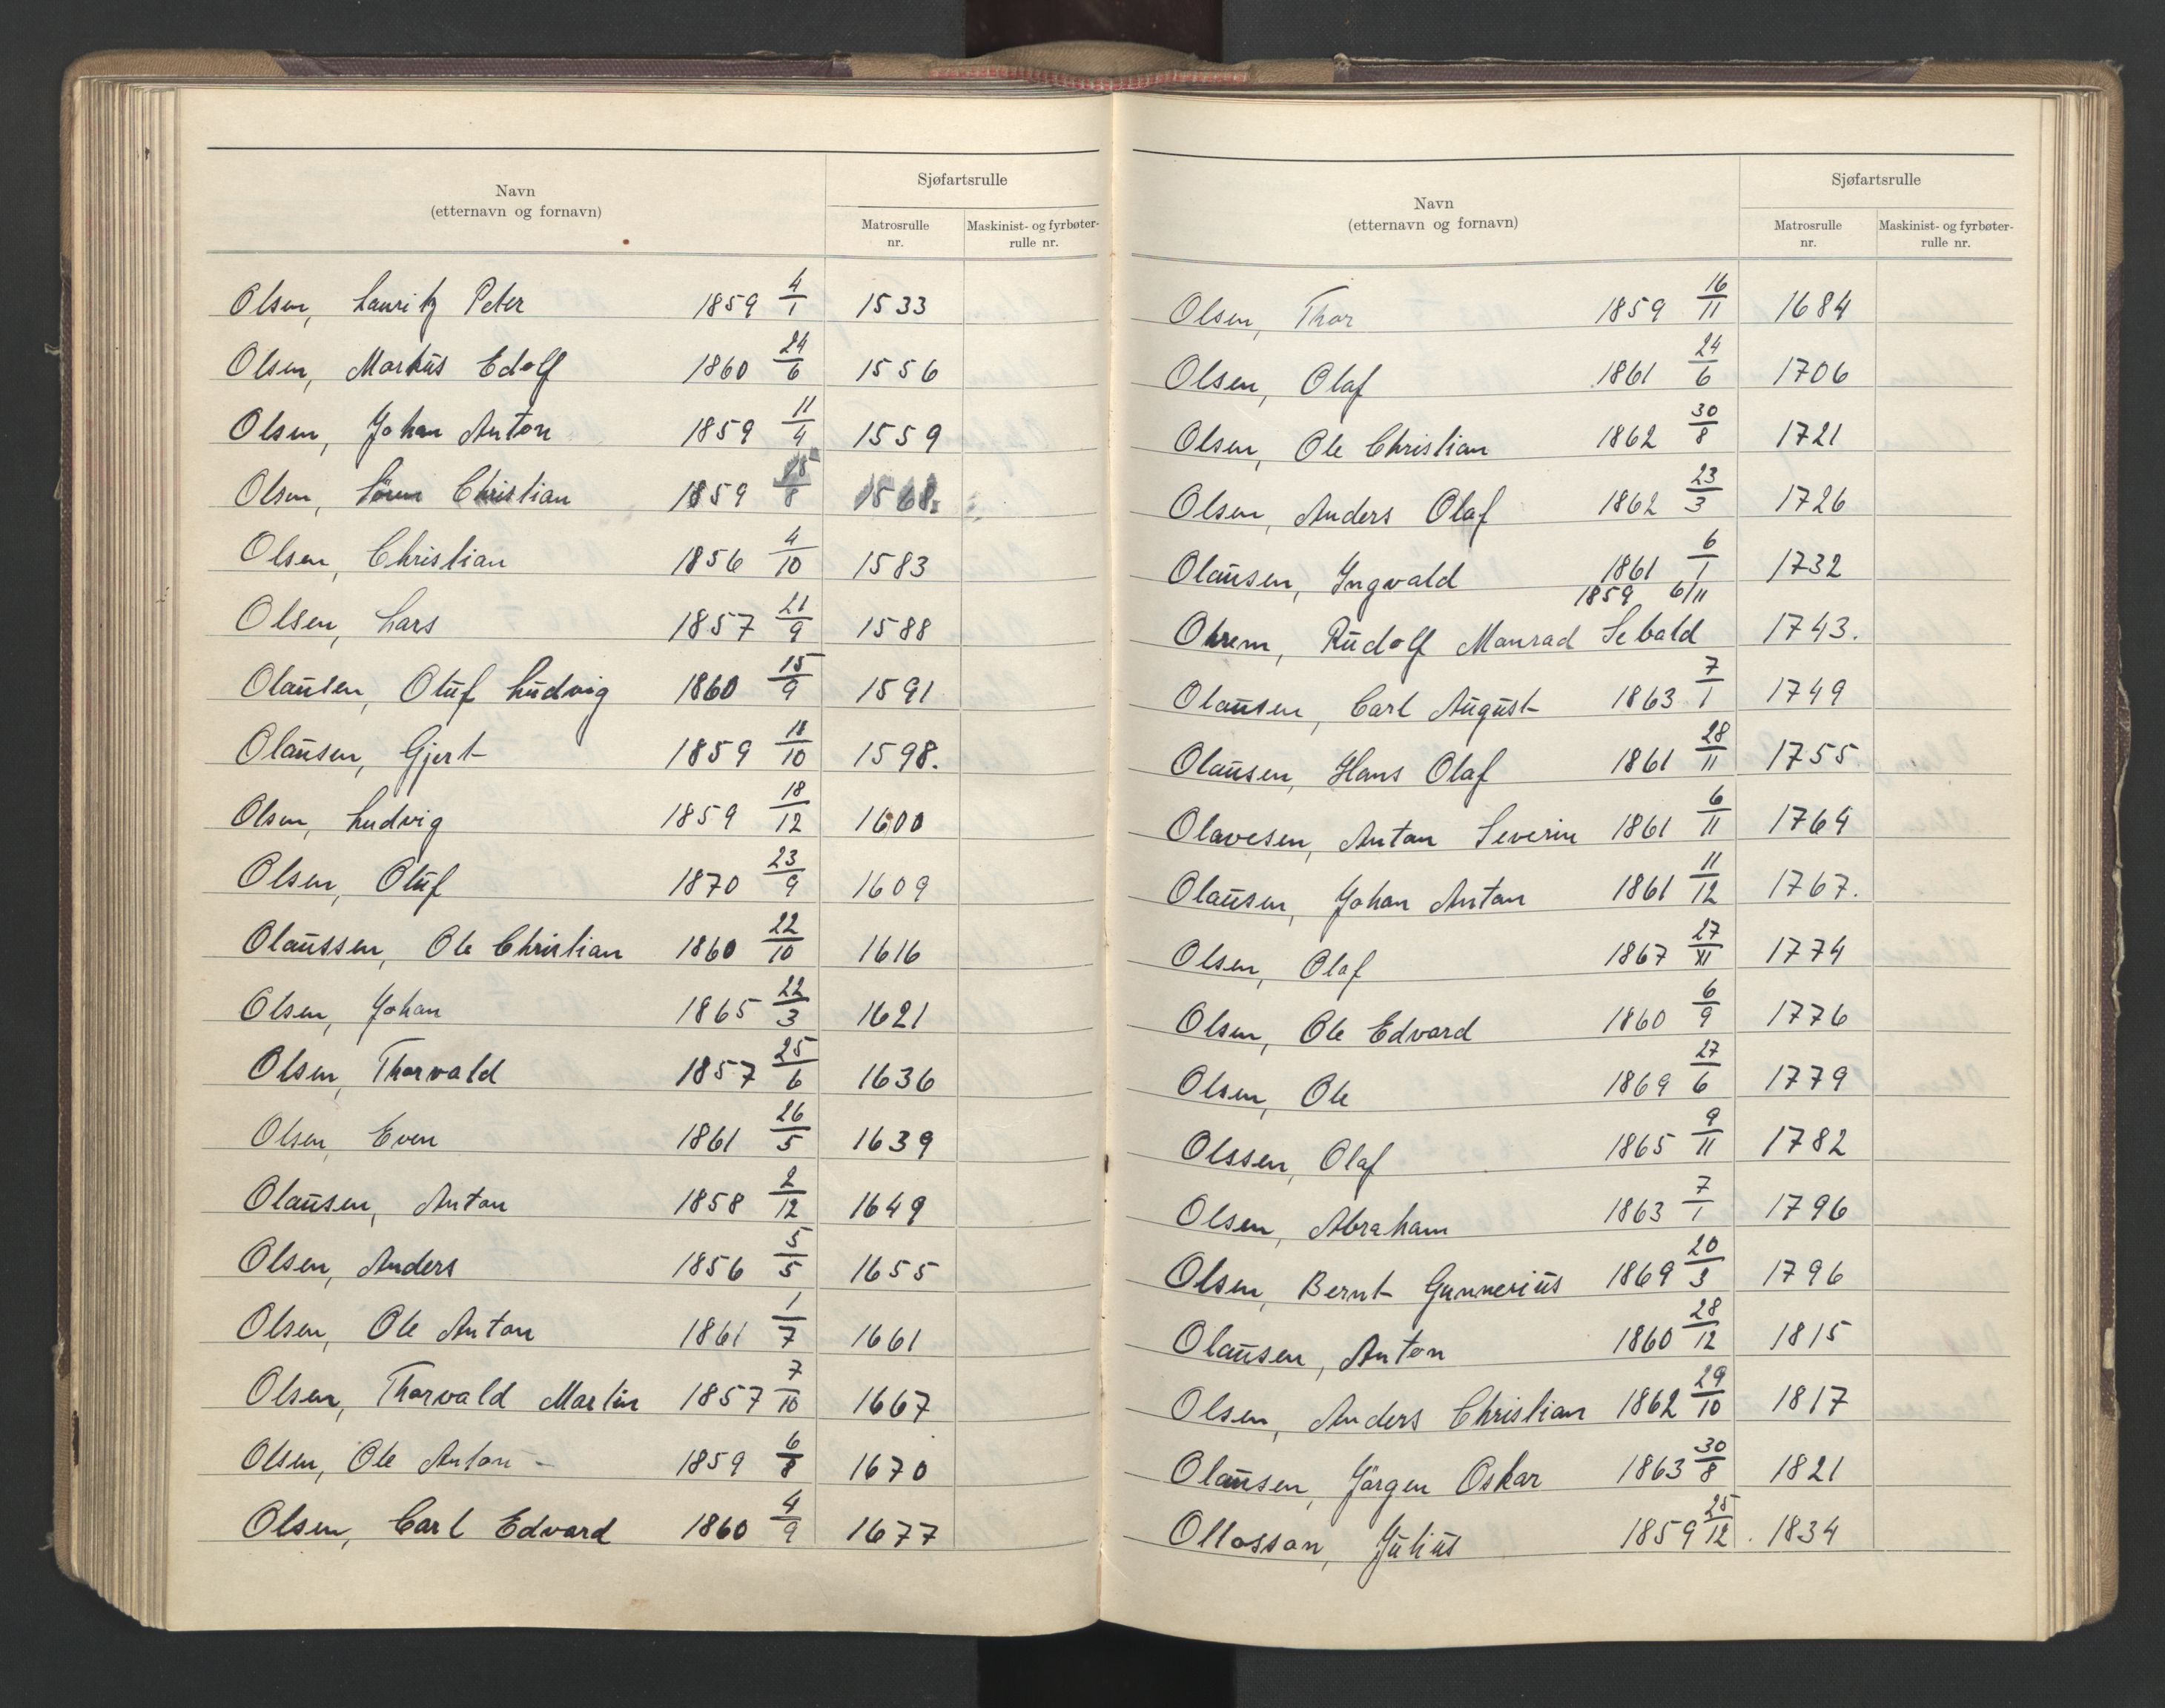 Navn
(etternavn og fornavn)
Sjøfartsrulle
Matrosrulle nr.
Maskinist- og fyrbøter-rulle nr.
Olsen, Lauritz Peter 1859 4/1 1533
Olsen, Markus Edolf 1860 24/6 1556
Olsen, Johan Anton 1859 11/4 1559
Olsen, Sörem Christian 1859 1568.
Olsen, Christian 1856 4/10 1583
Olsen, Lars 1857 21/9 1588
Olausen, Oluf Ludvig 1860 15/9 1591
Olausen, Gjert 1859 18/10 1598.
Olsen, Ludvig 1859 18/12 1600
Olsen, Oluf 1870 23/9 1609
Olaussen, Ole Christian 1860 22/10 1616
Olsen, Johan 1865 22/3 1621
Olsen, Thorvald 1857 25/6 1636
Olsen, Even 1861 26/5 1639
Olausen, Anton 1858 2/12 1649
Olsen, Anders 1856 5/5 1655
Olsen, Ole Anton 1861 1/7 1661
Olsen, Thorvald Martin 1857 7/10 1667
Olsen, Ole Anton 1859 6/8 1670
Olsen, Carl Edvard 1860 4/9 1677
Navn
(etternavn og fornavn)
Sjøfartsrulle
Matrosrulle nr.
Maskinist- og fyrbøter-rulle nr.
Olsen, Thor 1859 16/11 1684
Olsen, Olaf 1861 24/6 1706
Olsen, Ole Christian 1862 30/8 1721
Olsen, Anders Olaf 1862 23/3 1726
Olausen, Ingvald 1861 6/1 1732
1859 6/11
Ohrem, Rudolf Monrad Sebald 1743.
Olausen, Carl August 1863 7/1 1749
Olausen, Hans Olaf 1861 28/11 1755
Olavesen, Anton Severin 1861 6/11 1764
Olausen, Johan Anton 1861 11/12 1767.
Olsen, Olaf 1867 27/XI 1774
Olsen, Ole Edvard 1860 6/9 1776
Olsen, Ole 1869 27/6 1779
Olssen, Olaf 1865 9/11 1782
Olsen, Abraham 1863 7/1 1796
Olsen, Bernt Gunnerius 1869 20/3 1796
Olausen, Anton 1860 28/12 1815
Olsen, Anders Christian 1862 29/10 1817
Olausen, Jörgen Oskar 1863 30/8 1821
Ollosson, Julius 1859 25/12 1834